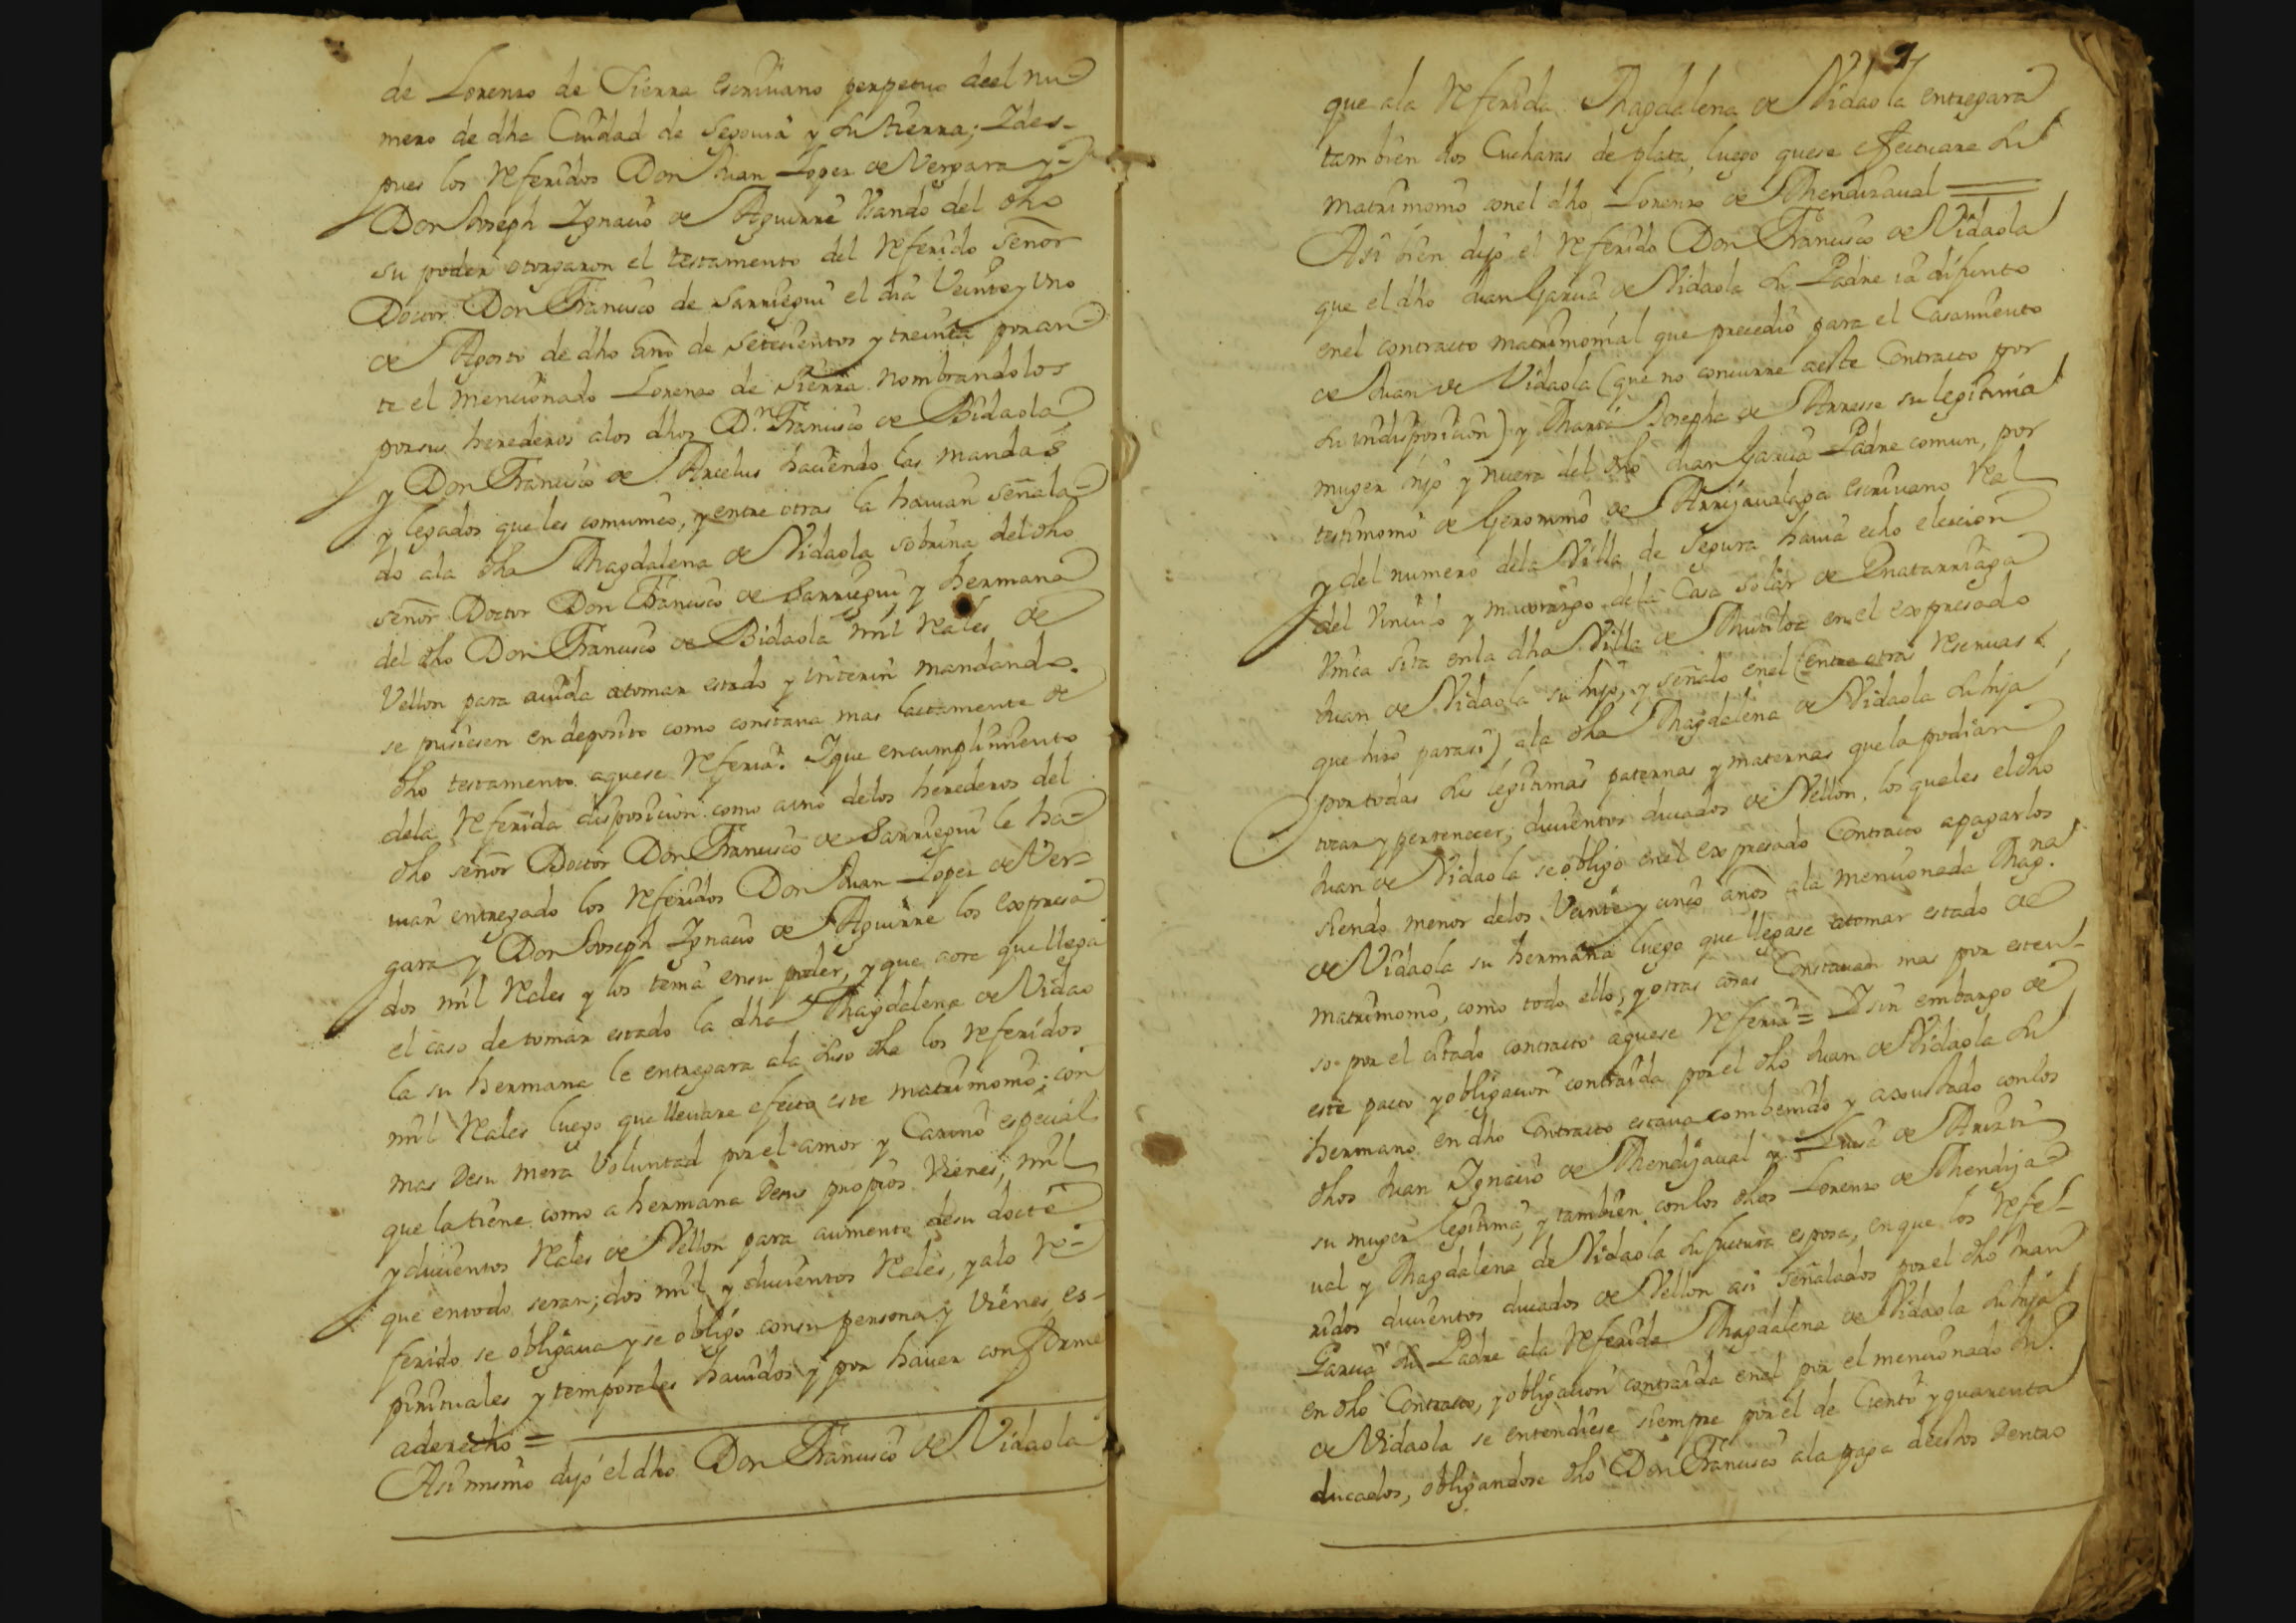 de Lorenzo de Sierra escriuano perpetuo deel nu-
mero de dha Ciudad de Segouia y su tierra; Ydes-
pues los referidos Don Juan Lopez de Vergara y
Don Joseph Ygnacio de Aguirre Vsando del dho
su poder otorgaron el testamento del referido señor
Doctor Don Francisco de Sarriegui el dia Veinte y vno
de Agosto de dho año de setecientos y treinta por an-
te el mencionado Lorenzo de Sierra nombrandolos
por sus herederos alos dhos Dn. Francisco de Bidaola
y Don Francisco de Arcelus haciendo las mandas
y legados que les comunico, y entre otras la hauian señala-
do ala dha Magdalena de Vidaola sobrina del dho
señor Doctor Don Francisco de Sarriegui y hermana
del dho Don Francisco de Bidaola mil reales de
Vellon para aiuda atomar estado y interin mandando
se pusiesen en deposito como constaua mas laitamente de
dho testamento aquese referia. Yque encumplimiento
dela referida disposicion como auno delos herederos del
dho señor Doctor Don Francisco de Sarriegui le ha-
uian entregado los referidos Don Juan Lopez de Ver-
gara y Don Joseph Ygnacio de Aguirre los expresa
dos mil reales y los tenia ensu poder, y que aora que llega
el caso de tomar estado la dha Magdalena de Vidao
la su hermana le entregara ala suso dha los referidos
mil reales luego que lleuare efecto este matrimonio; con
mas desu mera Voluntad por el amor y Cariño especial
que la tiene como a hermana desus propios Vienes, mil
y ducientos reales de Vellon para aumento desu docte
que entodo seran; dos mil y ducientos reales, y alo re-
ferido se obligaua y se obligo consu persona y Vienes es-
pirituales y temporales hauidos y por hauer conforme
aderecho =
Asimismo dijo el dho Don Francisco de Vidaola
9
que ala referida Magdalena de Vidaola entregara
tambien dos Cucharas de plata, luego quese efectuare su
matrimonio conel dho Lorenzo de Mendizaual
Asi bien dijo el referido Don Francisco de Vidaola
que el dho Juan Garcia de Vidaola su Padre ia difunto
enel contracto matrimonial que precedio para el Casamiento
de Juan de Vidaola (que no concurre aeste Contracto por
su indisposicion) y Maria Josepha de Arresse su legitima
muger hijo y nuera del dho Juan Garcia Padre comun, por
testimonio de Geronimo de Arrijaualaga escriuano real
y del numero dela Villa de Segura hauia echo eleccion
del Vinculo y maiorazgo dela Casa solar de Onatarriaga
Vnica sita enla dha Villa de Mutiloa en el expresado
Juan de Vidaola su hijo, y señalo enel (entre otras reseruas
que hizo parasi) ala dha Magdalena de Vidaola su hija
por todas sus legitimas paternas y maternas que la podian
tocar y pertenecer; ducientos ducados de Vellon, los quales el dho
Juan de Vidaola se obligo enel expresado Contracto apagarlos
siendo menor delos Veinte y cinco años ala mencionada Magna.
de Vidaola su hermana luego que llegase atomar estado de
matrimonio, como todo ello, y otras cosas Constauan mas por esten-
so por el citado contracto aquese referia = Y sin embargo de
este pacto y obligacion contraida por el dho Juan de Vidaola su
hermano en dho Contracto estaua combenido y ajustado conlos
dhos Juan Ygnacio de Mendijaual y Luisa de Ariztu
su muger legitima, y tambien conlos dhos Lorenzo de Mendija-
ual y Magdalena de Vidaola su futura esposa, en que los refe-
ridos ducientos ducados de Vellon asi señalados por el dho Juan
Garcia su Padre ala referida Magdalena de Vidaola su hija
en dho Contracto, y obligacion contraida enel por el mencionado Jun.
de Vidaola se entendiese siempre por el de Ciento y quarenta
ducados, obligandose dho Don Francisco ala paga deestos dentro